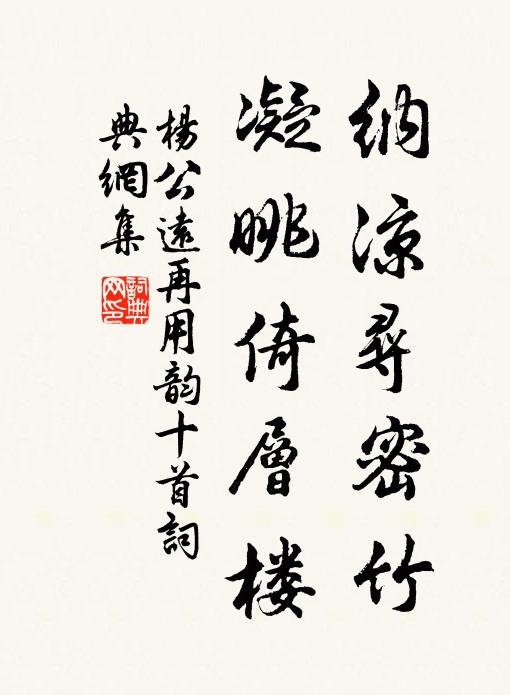 納凉尋密竹
凝眺倚層楼
楊公遠再用韵十首詞
典網集
詞典
网印